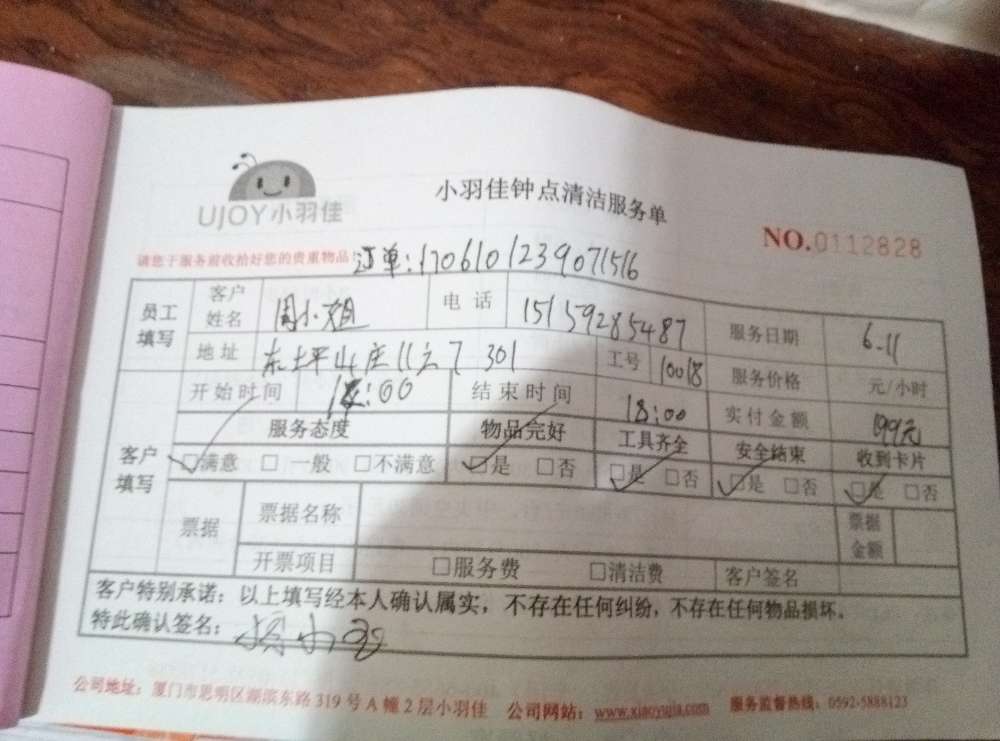 UJOY小羽佳
小羽佳钟点清洁服务单
NO.0112828
请您于服务前收拾好您的贵重物品! 订单:1706101239071516
员工填写 客户姓名 周小姐 电话 15159285487 服务日期 6-11
地址 东坪山庄11云7 301 工号 10018 服务价格 元/小时
开始时间 :00 结束时间 18:00 实付金额 199元
客户填写 服务态度 物品完好 工具齐全 安全结束 收到卡片
☑满意 □一般 □不满意 ☑是 □否 ☑是 □否 ☑是 □否 ☑是 □否
票据 票据名称 票据金额
开票项目 □服务费 □清洁费 客户签名
客户特别承诺：以上填写经本人确认属实，不存在任何纠纷，不存在任何物品损坏。
特此确认签名：
公司地址：厦门市思明区湖滨东路319号A幢2层小羽佳 公司网站：www.xiaoyujia.com 服务监督热线：0592-5888123